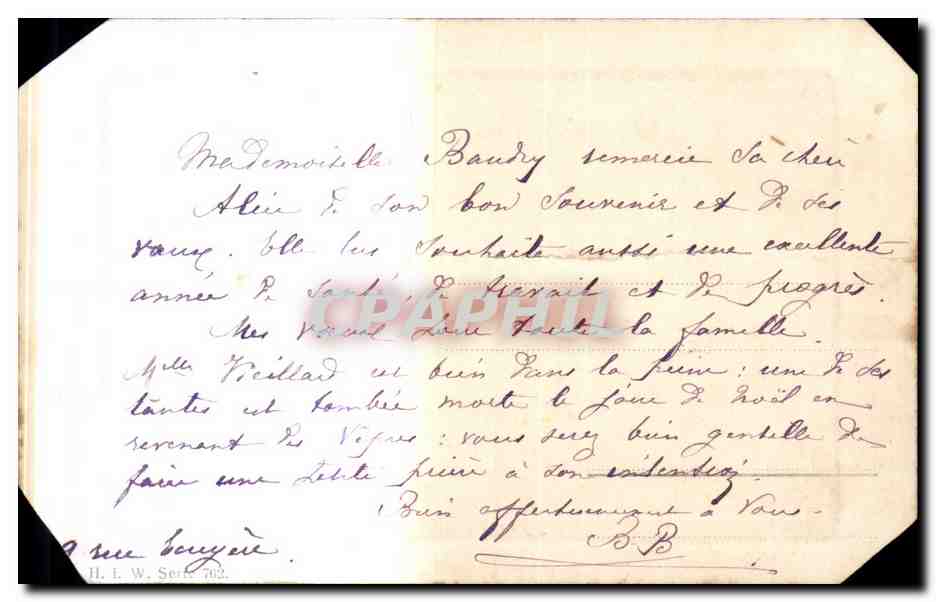 Mademoiselle Baudry remercie sa chère
Alice de son bon souvenir et de ses
vœux. Elle lui souhaite aussi une excellente
année de santé, de travail et de progrès.
Mes vœux pour toute la famille.
Mlle Vieillard est bien dans la peine : une de ses
tantes est tombée morte le jour de Noël en
revenant des Vêpres : vous serez bien gentille de
faire une petite prière à son intention.
Bien affectueusement à vous.
B. B
9 rue
H. I. W. Serie 762.
CPAPHIL